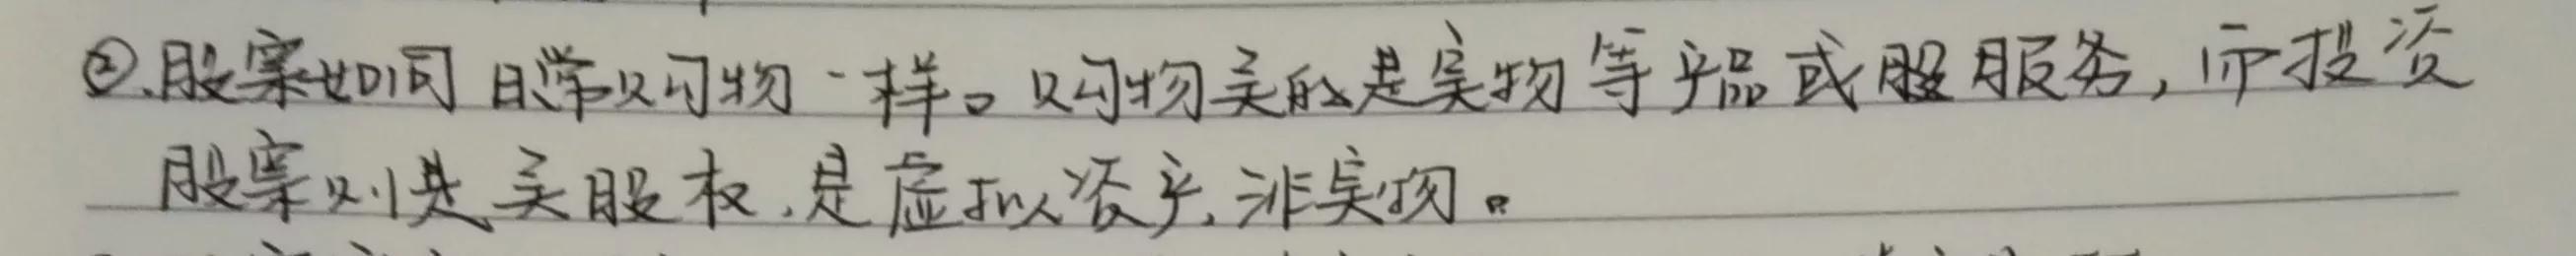 ②.股票如同日常购物一样。购物买的是实物等产品或服服务,而投资
股票则是买股权,是虚拟资产,非实物。